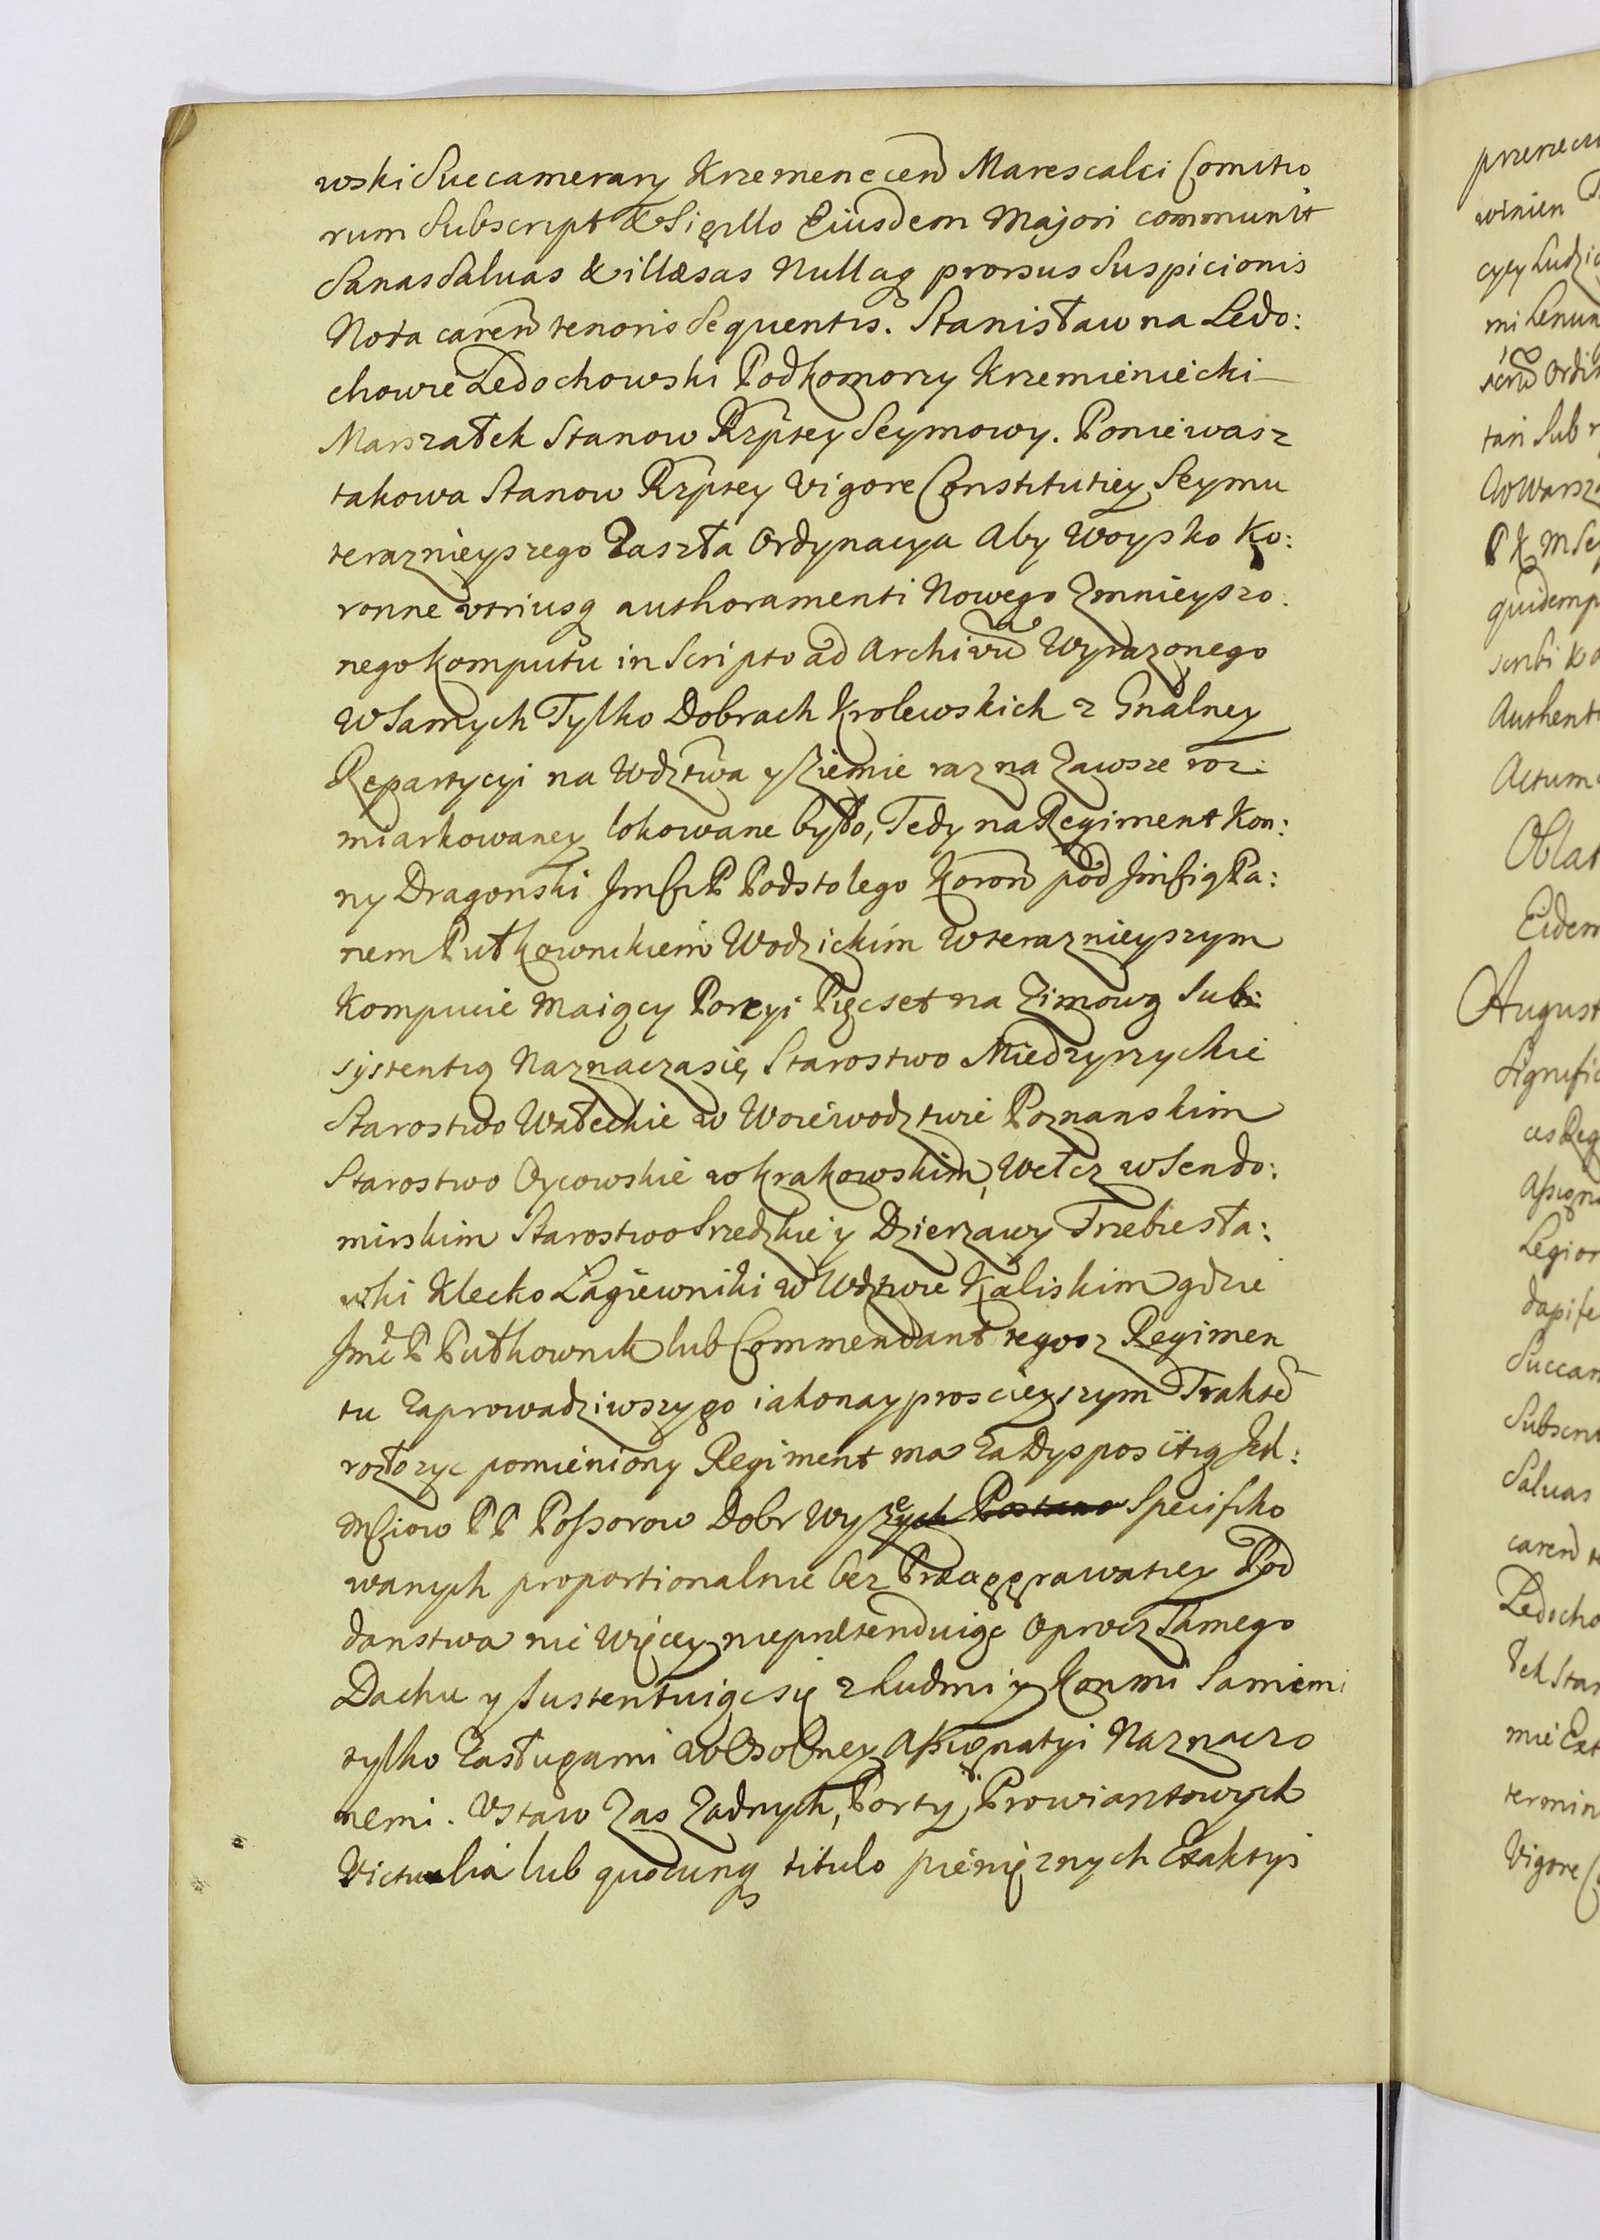 wski Succamerary Krzemenecen Marescalci Comitio
rum Subscript & Sigillo Eiusdem Majori communit
Sanas Saluas & illæsas Nullaq prorsus Suspicionis
Nota caren tenoris Sequentis. Stanisław na Ledo:
chowie Ledochowski Podkomorzy Krzemieniecki
Marszałek Stanow Rzptey Seymowy. Poniewasz
takowa Stanow Rzptey vigore Constitutiey Seymu
teraznieyszego Zaszła Ordynacya Aby Woysko Ko:
ronne utriusq authoramenti Nowego Zmnieyszo:
nego komputu in Scripto ad Archivu Wyrazonego
W Samych Tylko Dobrach Krolewskich z Gnalney
Repartycyi na Wdztwa y Ziemie raz na Zawsze roz:
miarkowaney lokowane było, Tedy na Regiment Kon:
ny Dragonski Jmści P Podstolego Koron pod Jmścią Pa:
nem Pułkownikiem Wodzickim w teraznieyszym
Kompucie Maiący Porcyi Pięcset na Zimową Sub:
systentią Naznacza się, Starostwo Miedzyrzyckie
Starostwo Wałeckie w Woiewodztwie Poznanskim
Starostwo Oycowskie w Krakowskim, Wełcz w Sendo:
mirskim Starostwo Srzedzkie y Dzierzawy Trzebiesła:
wki Klecko Lagiewniki w Wdztwie Kaliskim gdzie
Jmć P Pułkownik lub Commendant tegosz Regimen
tu Zaprowadziwszy go iako nayproscieyszym Trakte
rozłozyc pomieniony Regiment ma Za Dyspositią Ich:
Mściow PP Possorow Dobr Wyszey Specifiko
wanych proportionalnie bez Præaggrawatiey Pod
danstwa nic Więcey niepretenduiąc Oprocz Samego
Dachu y Sustentuiąc się z Ludzmi y Konmi Samemi
tylko Zasługami w Osobney Assignatyi Naznaczo
nemi. Ustaw Zas Zadnych, Porty, Prowiantowych
Victualia lub quocunq titulo pienięznych Exaktyi